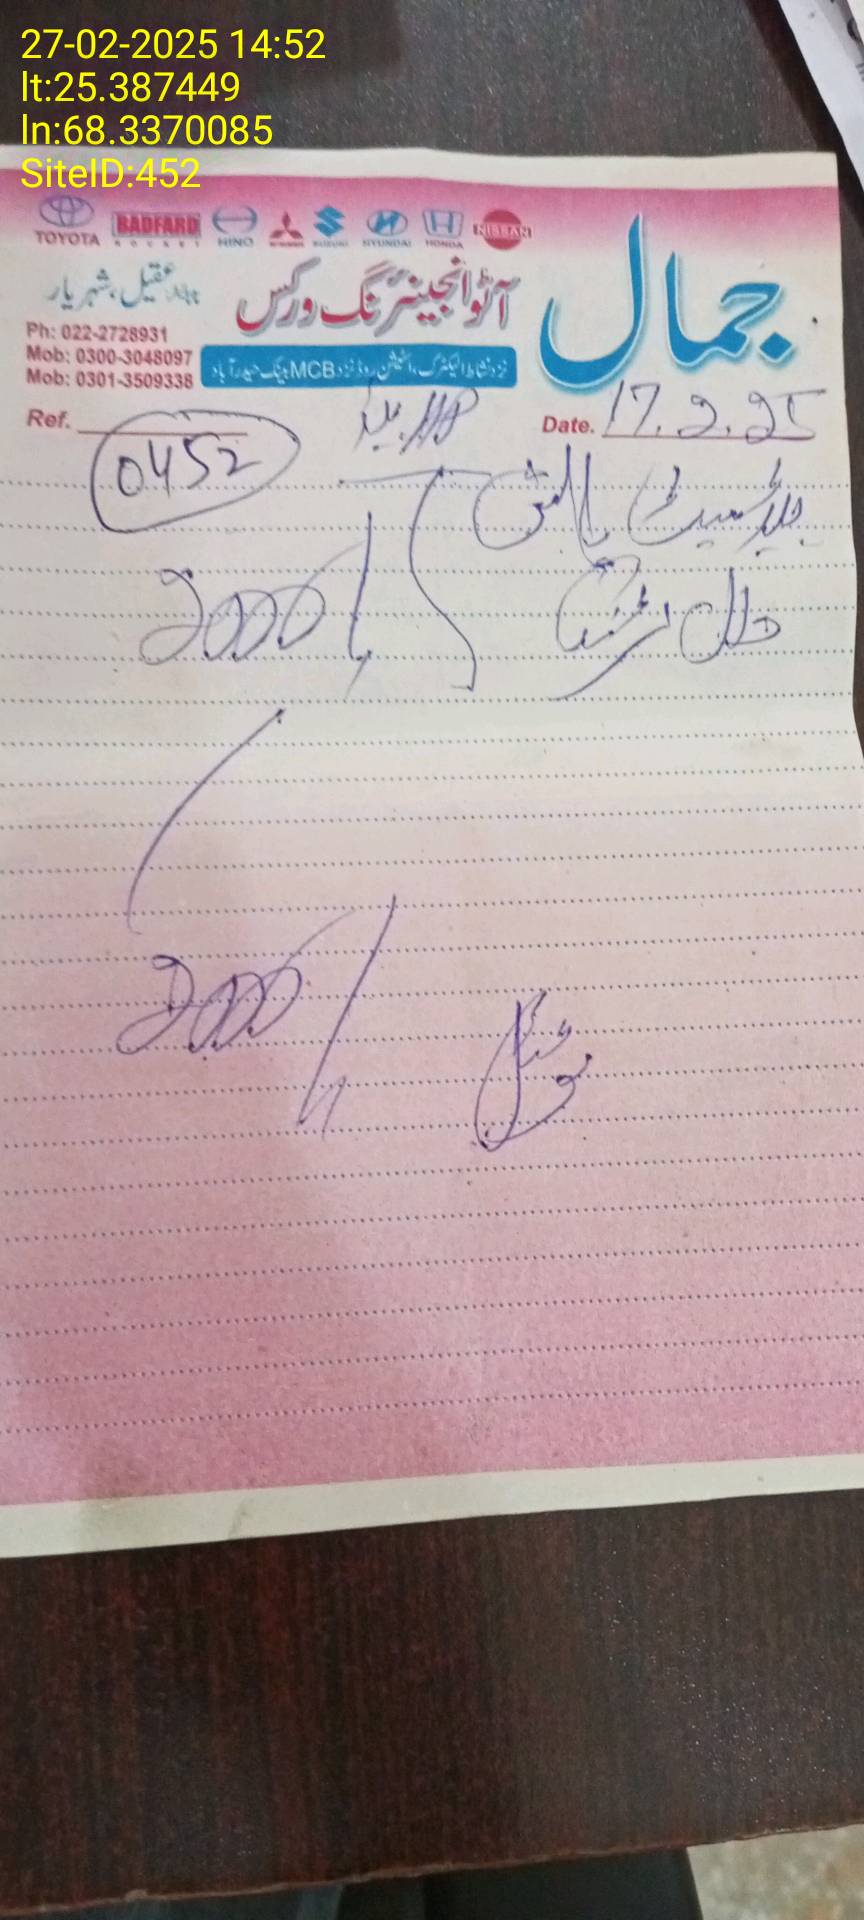 27-02-2025 14:52
lt:25.387449
ln:68.3370085
SiteID:452
TOYOTA BADFARD ROCKET HINO SUZUKI HYUNDAI HONDA NISSAN
جمال
آٹو انجینئرنگ ورکس
عقیل، شہریار
Ph: 022-2728931
Mob: 0300-3048097
Mob: 0301-3509338
نزد نشاط الیکٹرک، اسٹیشن روڈ نزد MCB بینک حیدرآباد
Ref.
Date. 17.2.25
0452
ہیڈ سیٹ پالش
2000/
2000/
ٹوٹل